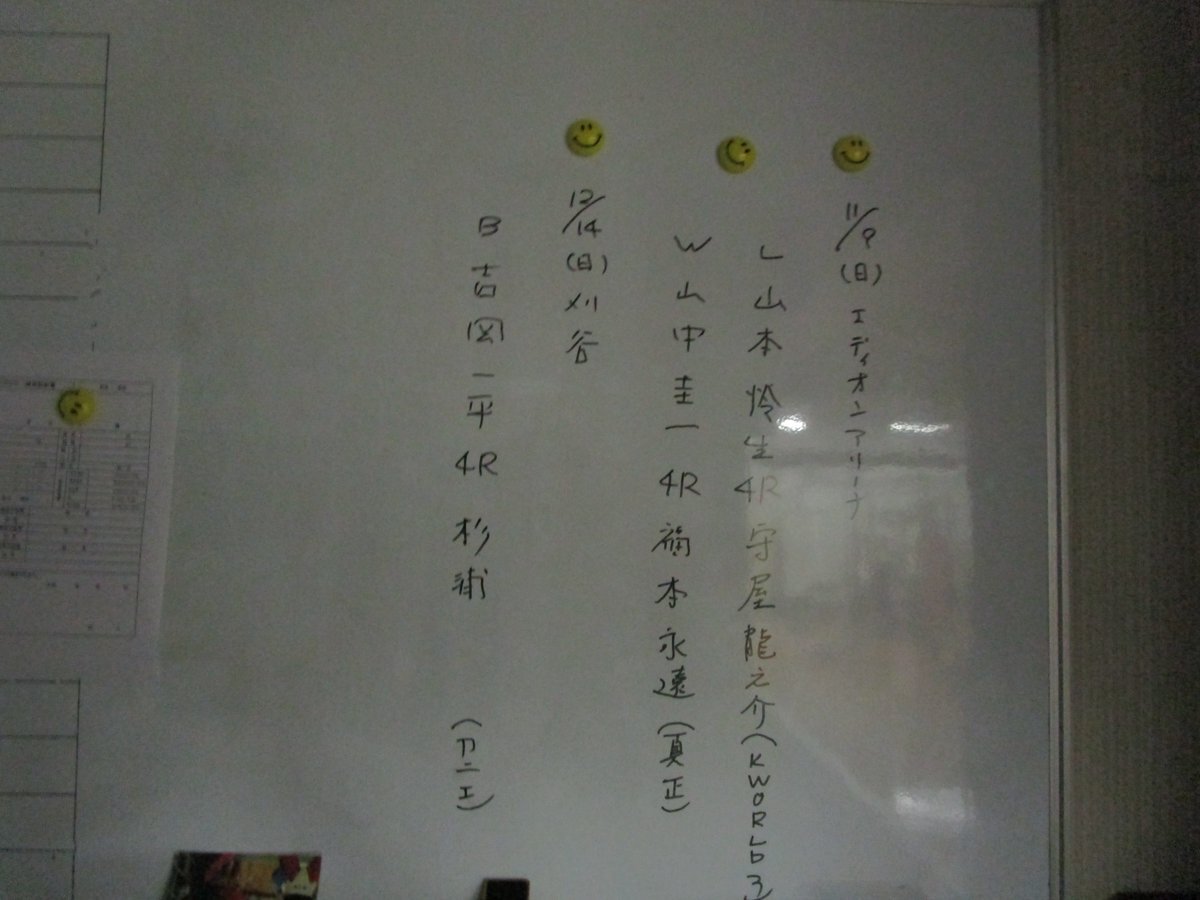 11/9(日)エディオンアリーナ
L 山本怜生 4R 守屋龍之介(KWORLD3
W 山中圭一 4R 福本永遠(真正)
12/14(日)刈谷
B 吉岡一平 4R 杉浦 (カニエ)